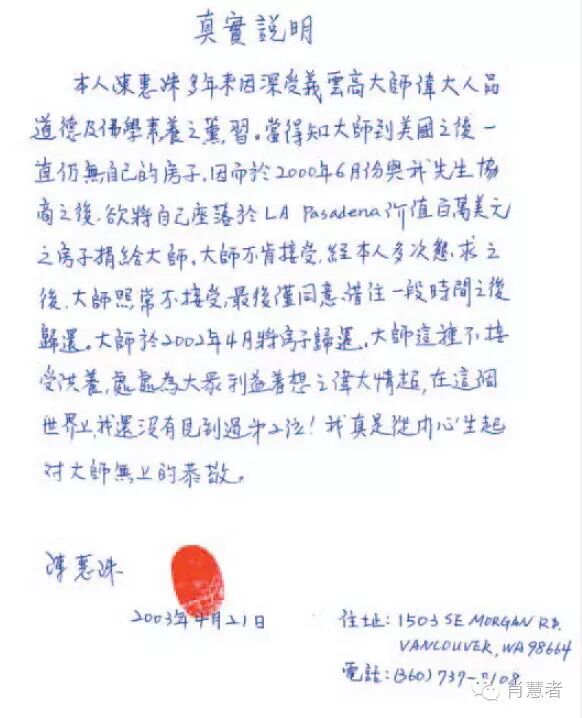 真實說明
本人陳惠珠多年來因深受義雲高大師偉大人品
道德及佛學素養之薰習。當得知大師到美國之後一
直仍無自己的房子,因而於2000年6月份與我先生協
商之後,欲將自己座落於LA Pasadena价值百萬美元
之房子捐給大師。大師不肯接受,經本人多次懇求之
後,大師照常不接受,最後僅同意借住一段時間之後
歸還。大師於2002年4月將房子歸還。大師這種不接
受供養,處處為大眾利益着想之偉大情超,在這個
世界上,我還沒有見到過第2位!我真是從内心生起
对大師無上的恭敬。
陳惠珠
2003年4月21日
住址:1503 SE MORGAN RD.
VANCOUVER, WA 98664
電話:(360) 737-
肖慧者